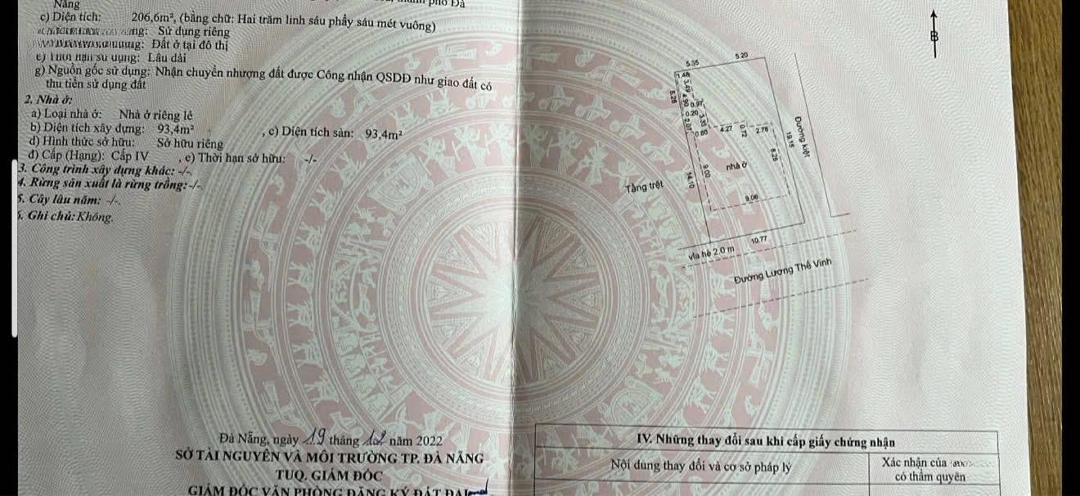 Nẵng
c) Diện tích: 206,6m², (bằng chữ: Hai trăm linh sáu phẩy sáu mét vuông)
Sử dụng riêng
Đất ở tại đô thị
Lâu dài
g) Nguồn gốc sử dụng: Nhận chuyển nhượng đất được Công nhận QSDĐ như giao đất có
thu tiền sử dụng đất
2. Nhà ở:
a) Loại nhà ở: Nhà ở riêng lẻ
b) Diện tích xây dựng: 93,4m² , c) Diện tích sàn: 93,4m²
d) Hình thức sở hữu: Sở hữu riêng
đ) Cấp (Hạng): Cấp IV , e) Thời hạn sở hữu: -/-
3. Công trình xây dựng khác: -/-
4. Rừng sản xuất là rừng trồng: -/-
5. Cây lâu năm: -/-.
6. Ghi chú: Không.
Đà Nẵng, ngày 19 tháng 12 năm 2022
SỞ TÀI NGUYÊN VÀ MÔI TRƯỜNG TP. ĐÀ NẴNG
TUQ. GIÁM ĐỐC
GIÁM ĐỐC VĂN PHÒNG ĐĂNG KÝ ĐẤT ĐAI
B
5.35
5.20
1.48
5.28
0.20
0.60
4.27
0.73
2.78
Đường kiệt
19.15
9.28
nhà ở
9.00
14.10
Tầng trệt
9.06
10.77
vỉa hè 2.0 m
Đường Lương Thế Vinh
IV. Những thay đổi sau khi cấp giấy chứng nhận
Nội dung thay đổi và cơ sở pháp lý
Xác nhận của
có thẩm quyền